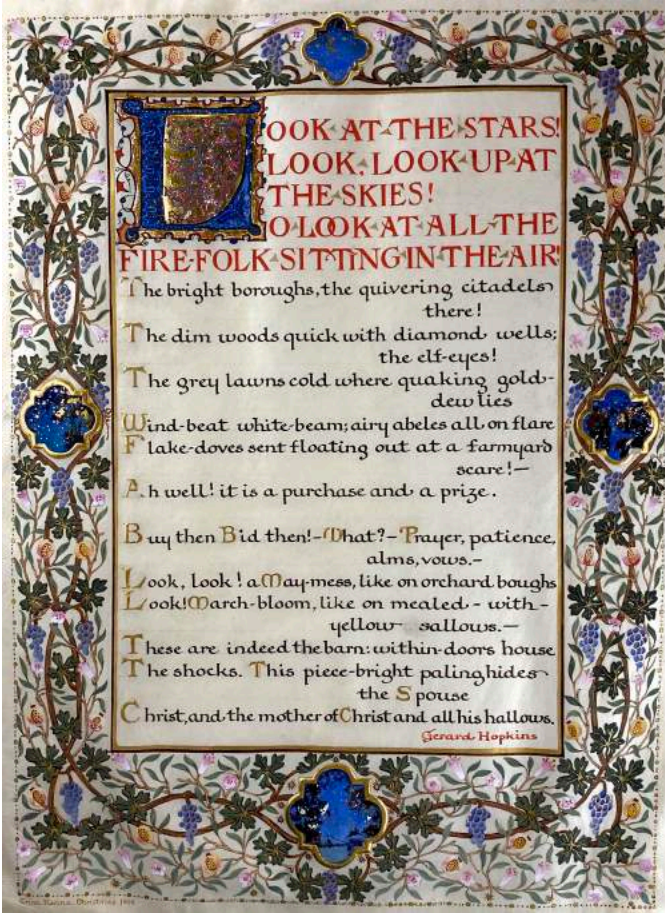 LOOK AT THE STARS!
LOOK, LOOK UP AT
THE SKIES!
O LOOK AT ALL THE
FIRE-FOLK SITTING IN THE AIR!
The bright boroughs, the quivering citadels
there!
The dim woods quick with diamond wells;
the elf-eyes!
The grey lawns cold where quaking gold-
dew lies
Wind-beat white-beam; airy abeles all on flare
Flake-doves sent floating out at a farmyard
scare!—
Ah well! it is a purchase and a prize.
Buy then Bid then!-What?-Prayer, patience,
alms, vows.-
Look, look! a May-mess, like on orchard boughs
Look! March-bloom, like on mealed-with-
yellow sallows.—
These are indeed the barn: within-doors house
The shocks. This piece-bright paling hides
the Spouse
Christ, and the mother of Christ and all his hallows.
Gerard Hopkins